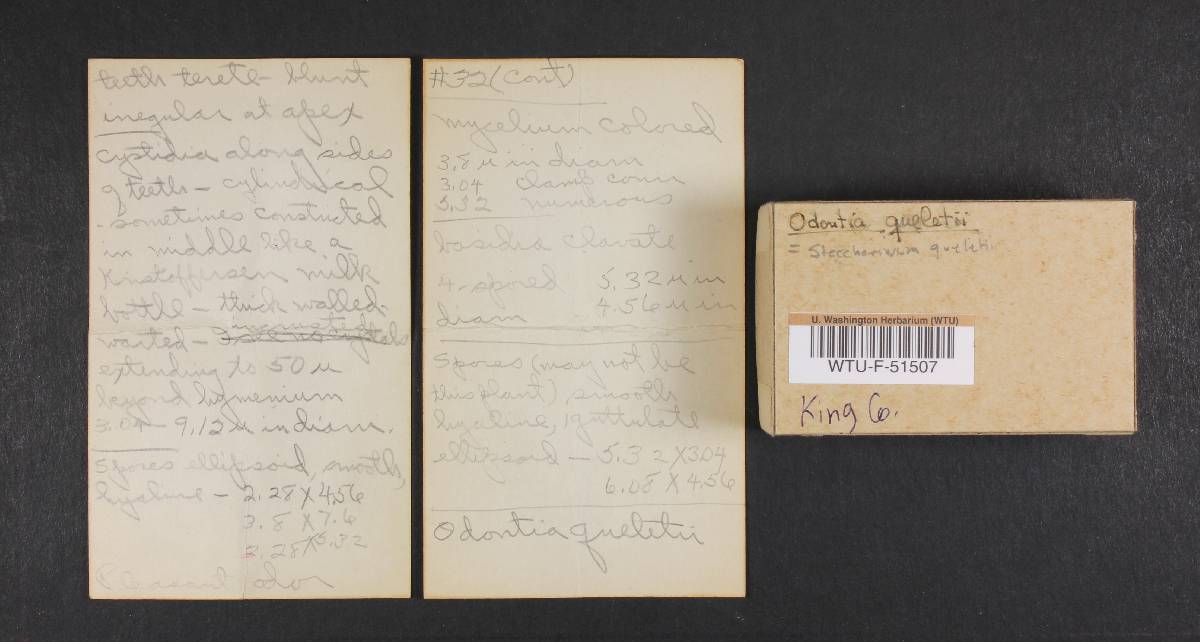 teeth terete - blunt
irregular at apex
cystidia along sides
of teeth - cylindrical
- sometimes constricted
in middle like a
Kristoffersen milk
bottle - thick walled -
incrusted
warted - I see no crystals
extending to 50 µ
beyond hymenium
3.04 - 9.12 µ in diam.
spores ellipsoid, smooth,
hyaline - 2.28 X 4.56
3.8 X 7.6
2.28 X 5.32
Pleasant odor
#32 (cont)
mycelium colored
3.8 µ in diam
3.04 clamp conn
5.32 numerous
basidia clavate
4-spored 5.32 µ in
diam 4.56 µ in
Spores (may not be
this plant), smooth
hyaline, 1 guttulate
ellipsoid - 5.32 X 3.04
6.08 X 4.56
Odontia queletii
Odontia queletii
= Steccherinum queletii
U. Washington Herbarium (WTU)
WTU-F-51507
King Co.